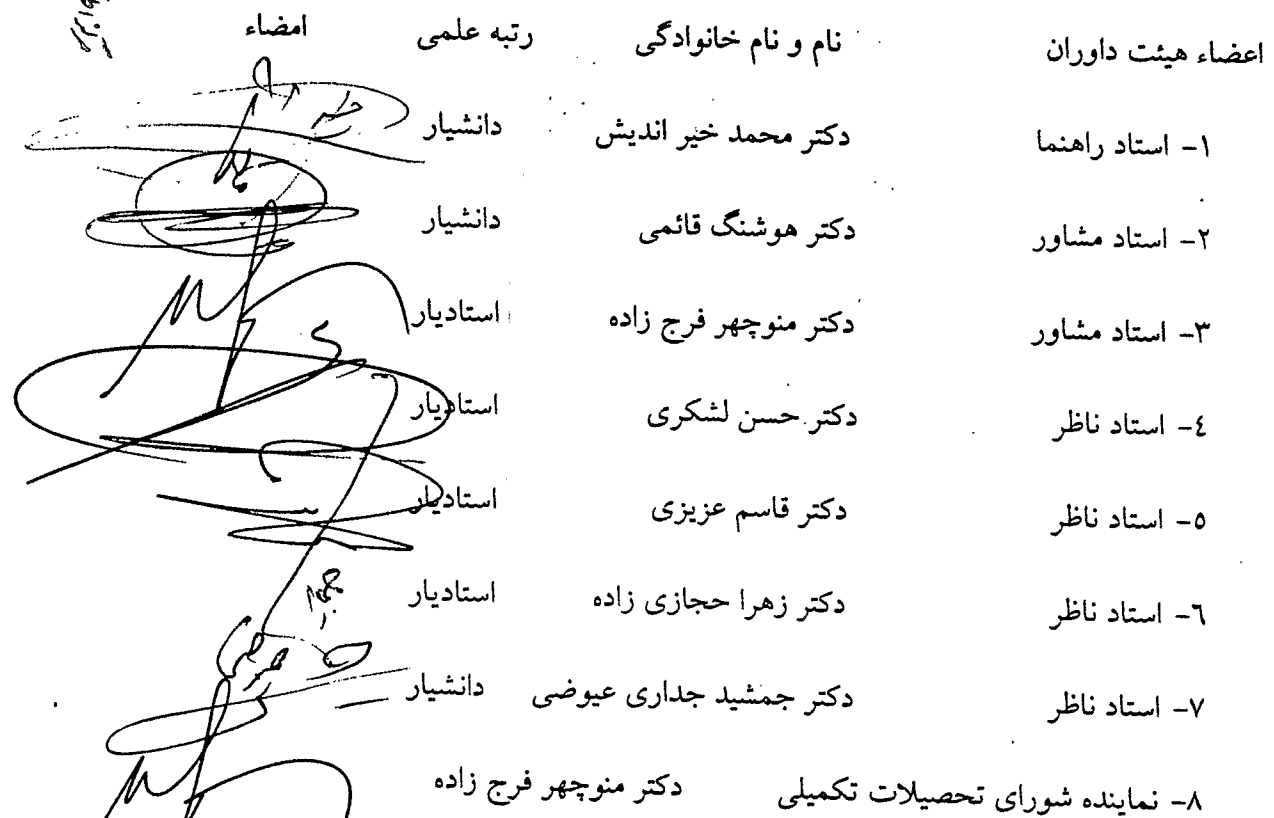 اعضاء هیئت داوران نام و نام خانوادگی رتبه علمی امضاء
۱- استاد راهنما دکتر محمد خیر اندیش دانشیار
۲- استاد مشاور دکتر هوشنگ قائمی دانشیار
۳- استاد مشاور دکتر منوچهر فرج زاده استادیار
٤- استاد ناظر دکتر حسن لشکری استادیار
٥- استاد ناظر دکتر قاسم عزیزی استادیار
٦- استاد ناظر دکتر زهرا حجازی زاده استادیار
۷- استاد ناظر دکتر جمشید جداری عیوضی دانشیار
۸- نماینده شورای تحصیلات تکمیلی دکتر منوچهر فرج زاده